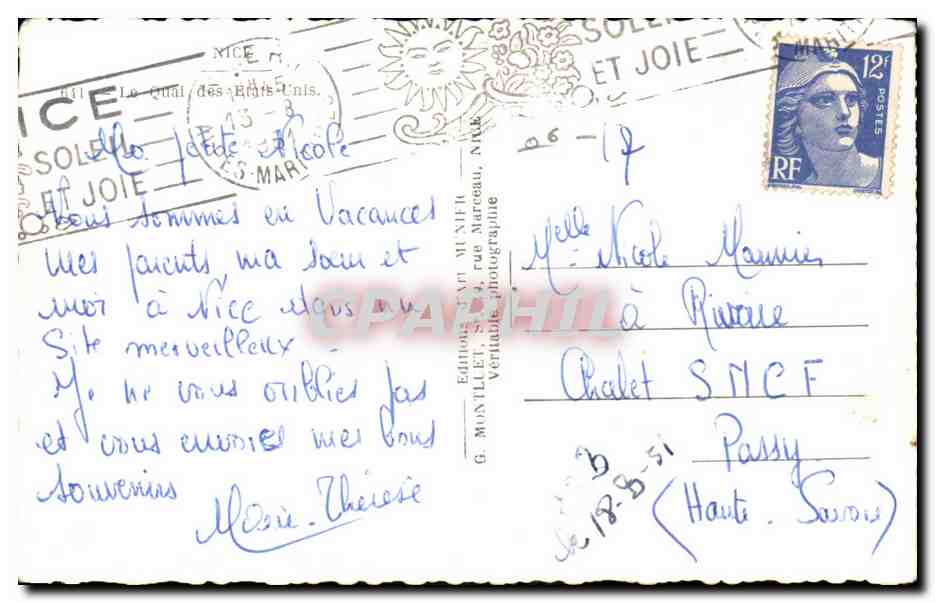 NICE
641 - Le Quai des Etats-Unis.
NICE
SOLEIL
ET JOIE
13 - 8
ES-MARI
SOLEIL
ET JOIE
MARI
12F
POSTES
RF
Ma petite Nicole
Nous sommes en Vacances
mes parents, ma sœur et
moi à Nice dans un
Site merveilleux.
Je ne vous oublies pas
et vous envoies mes bons
souvenirs
Marie-Thérèse
Editions PAUL MUNIER
G. MONTLUET, Succr, 9, rue Marceau, NICE
Véritable photographie
CPARPHIL
06 - 17
Melle Nicole Meunier
à Rivoire
Chalet SNCF
Passy
(Haute-Savoie)
le 18-8-51